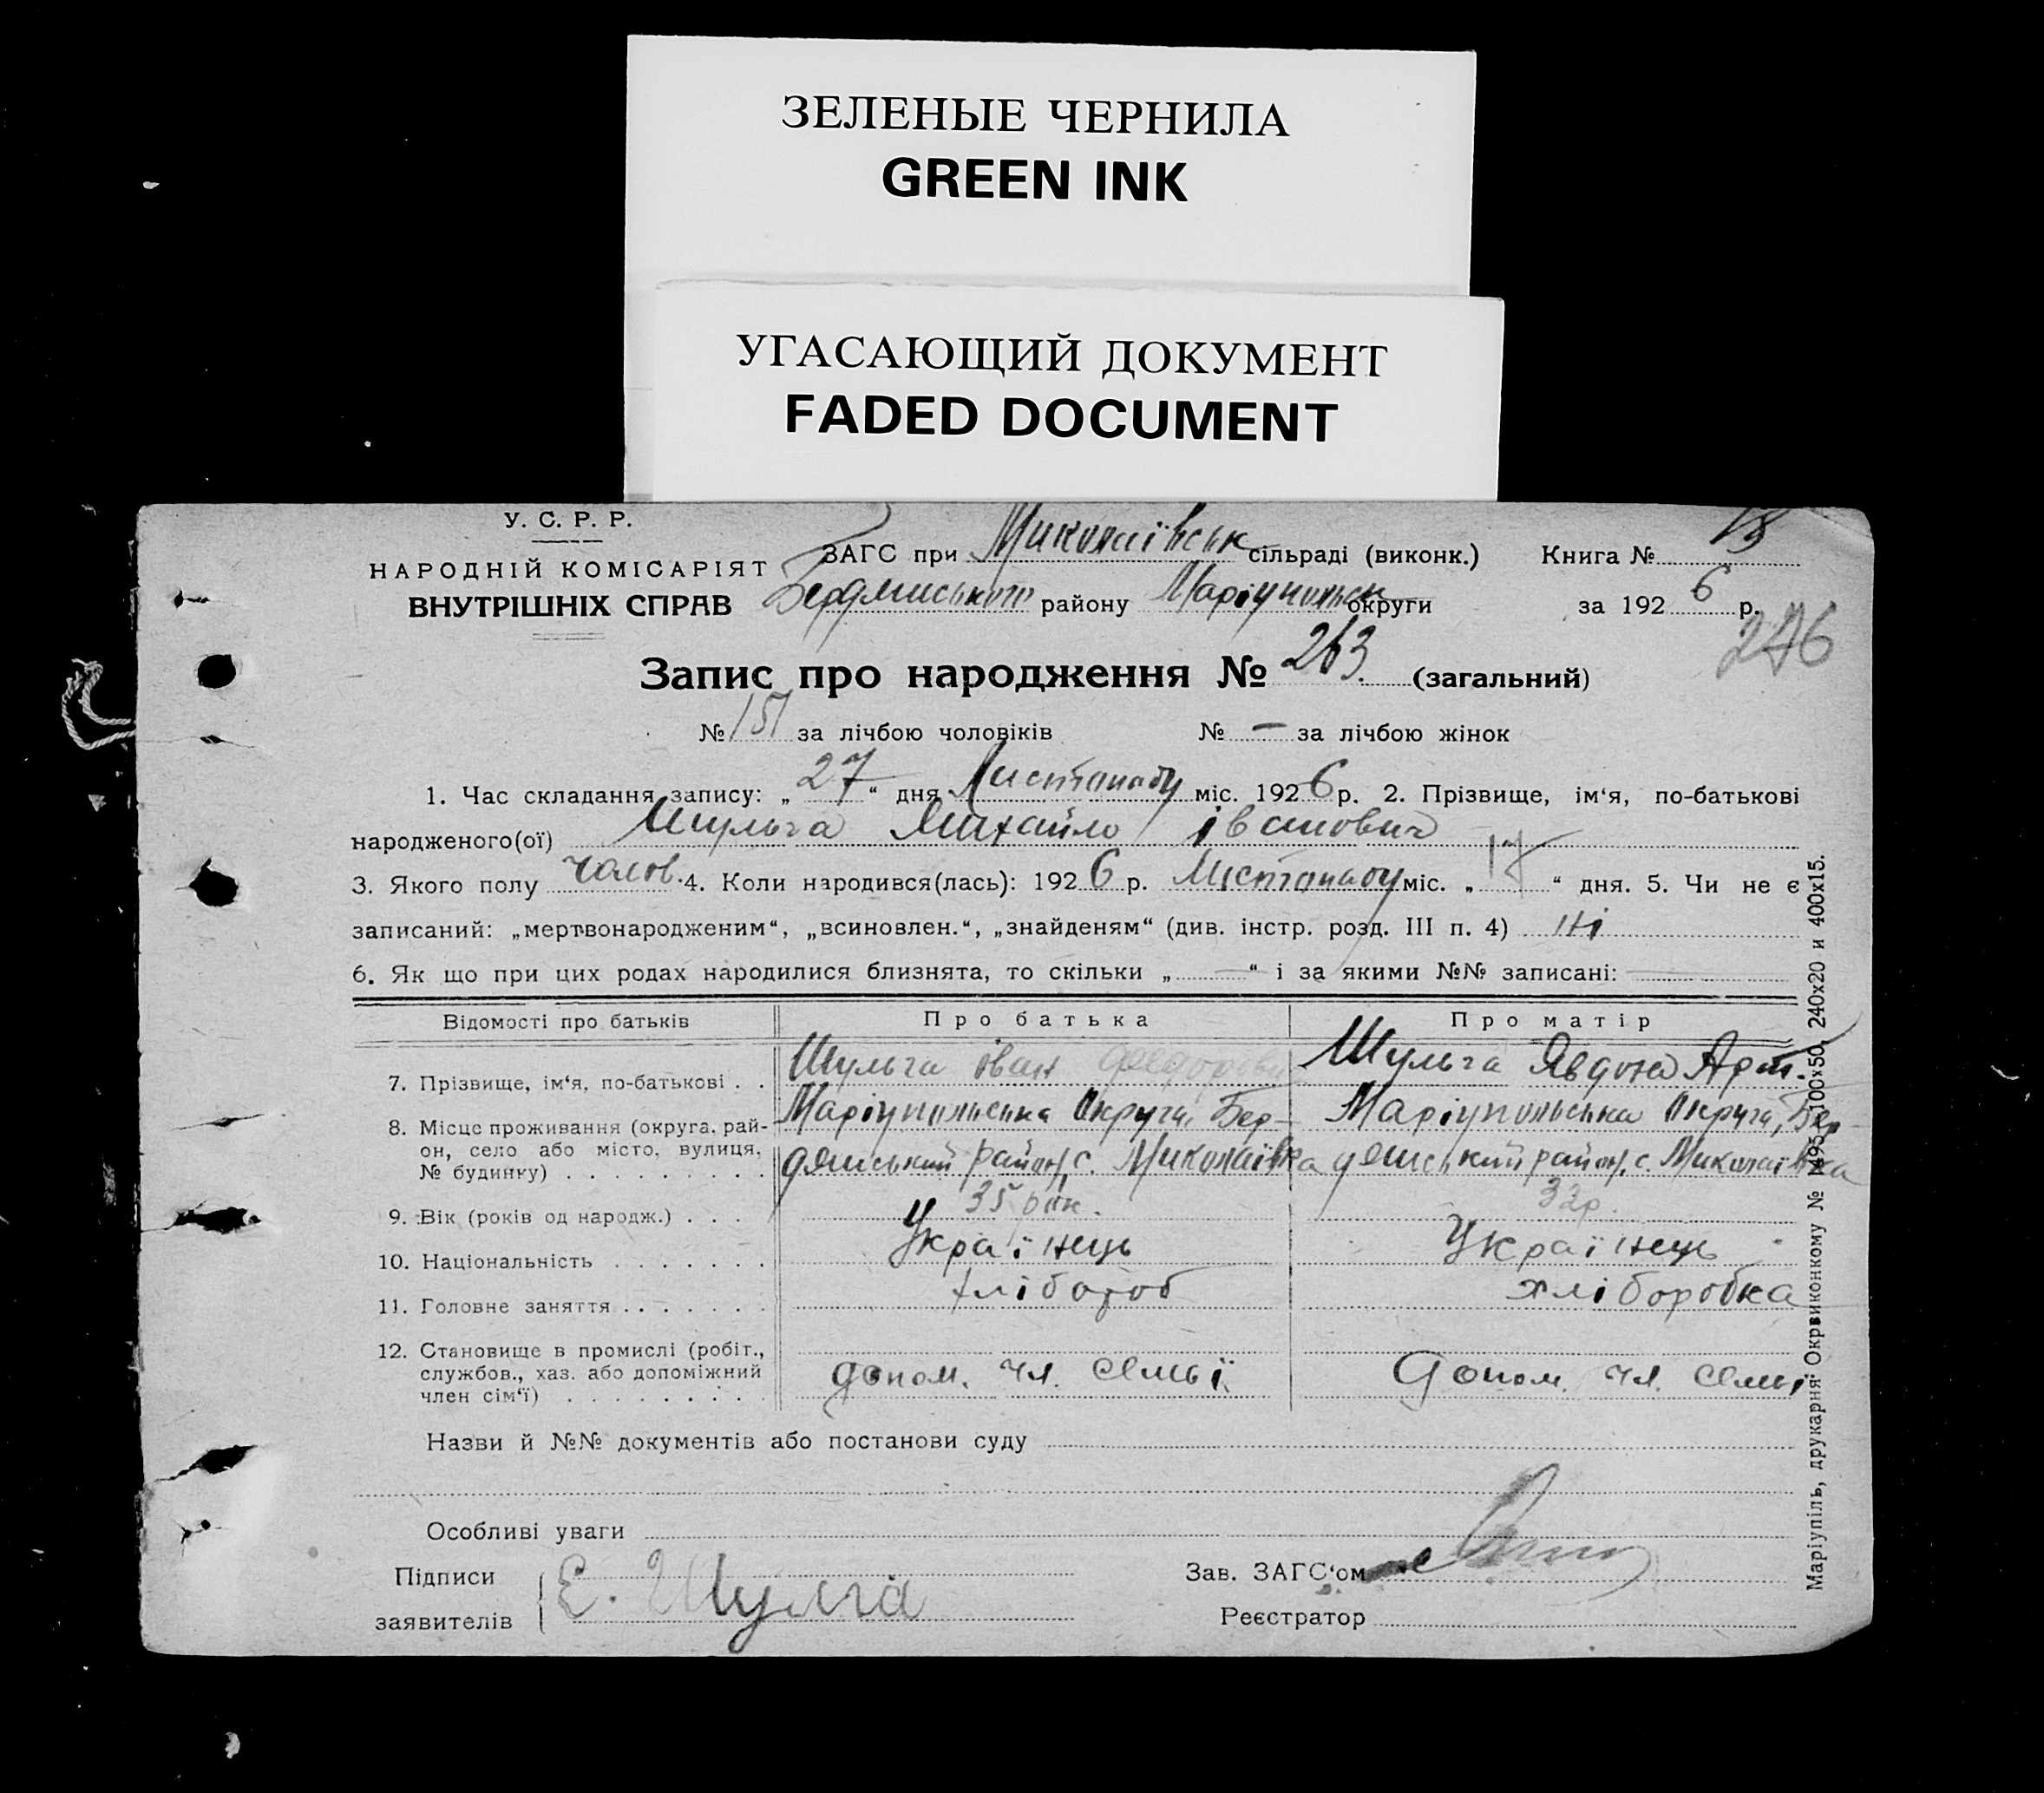 ЗЕЛЕНЫЕ ЧЕРНИЛА
GREEN INK
УГАСАЮЩИЙ ДОКУМЕНТ
FADED DOCUMENT
У. С. Р. Р.
НАРОДНІЙ КОМІСАРІЯТ
ВНУТРІШНІХ СПРАВ
ЗАГС при Миколаївськ сільраді (виконк.) Книга №
Бердянського району Маріупольск округи за 1926 р.
276
Запис про народження № 263. (загальний)
№ 151 за лічбою чоловіків № — за лічбою жінок
1. Час складання запису: „27“ дня Листопаду міс. 1926 р. 2. Прізвище, ім‘я, по-батькові
народженого(ої) Шульга Михайло іванович
3. Якого полу чолов. 4. Коли народився(лась): 1926 р. Листопаду міс. „17“ дня. 5. Чи не є
записаний: „мертвонародженим“, „всиновлен.“, „знайденям“ (див. інстр. розд. III п. 4) ні
6. Як що при цих родах народилися близнята, то скільки „—“ і за якими №№ записані: —
Відомості про батьків Про батька Про матір
7. Прізвище, ім‘я, по-батькові . . Шульга іван Федорови Шульга Явдоха Арт.
8. Місце проживання (округа, рай-он, село або місто, вулиця, № будинку) Маріупольська Округа, Бер-дянський район, с. Миколаївка Маріупольська Округа, Бер-дянський район, с. Миколаївка
9. Вік (років од народж.) . . . 35 рок. 32 р.
10. Національність Українець Українець
11. Головне заняття хлібороб хліборобка
12. Становище в промислі (робіт., службов., хаз. або допоміжний член сім‘ї) допом. чл. семьї допом. чл. семьї
Назви й №№ документів або постанови суду
Особливі уваги
Підписи заявителів Е. Шулга
Зав. ЗАГС‘ом
Реєстратор
Маріупіль, друкарня Окрвиконкому № 1495. 100х50, 240х20 и 400х15.